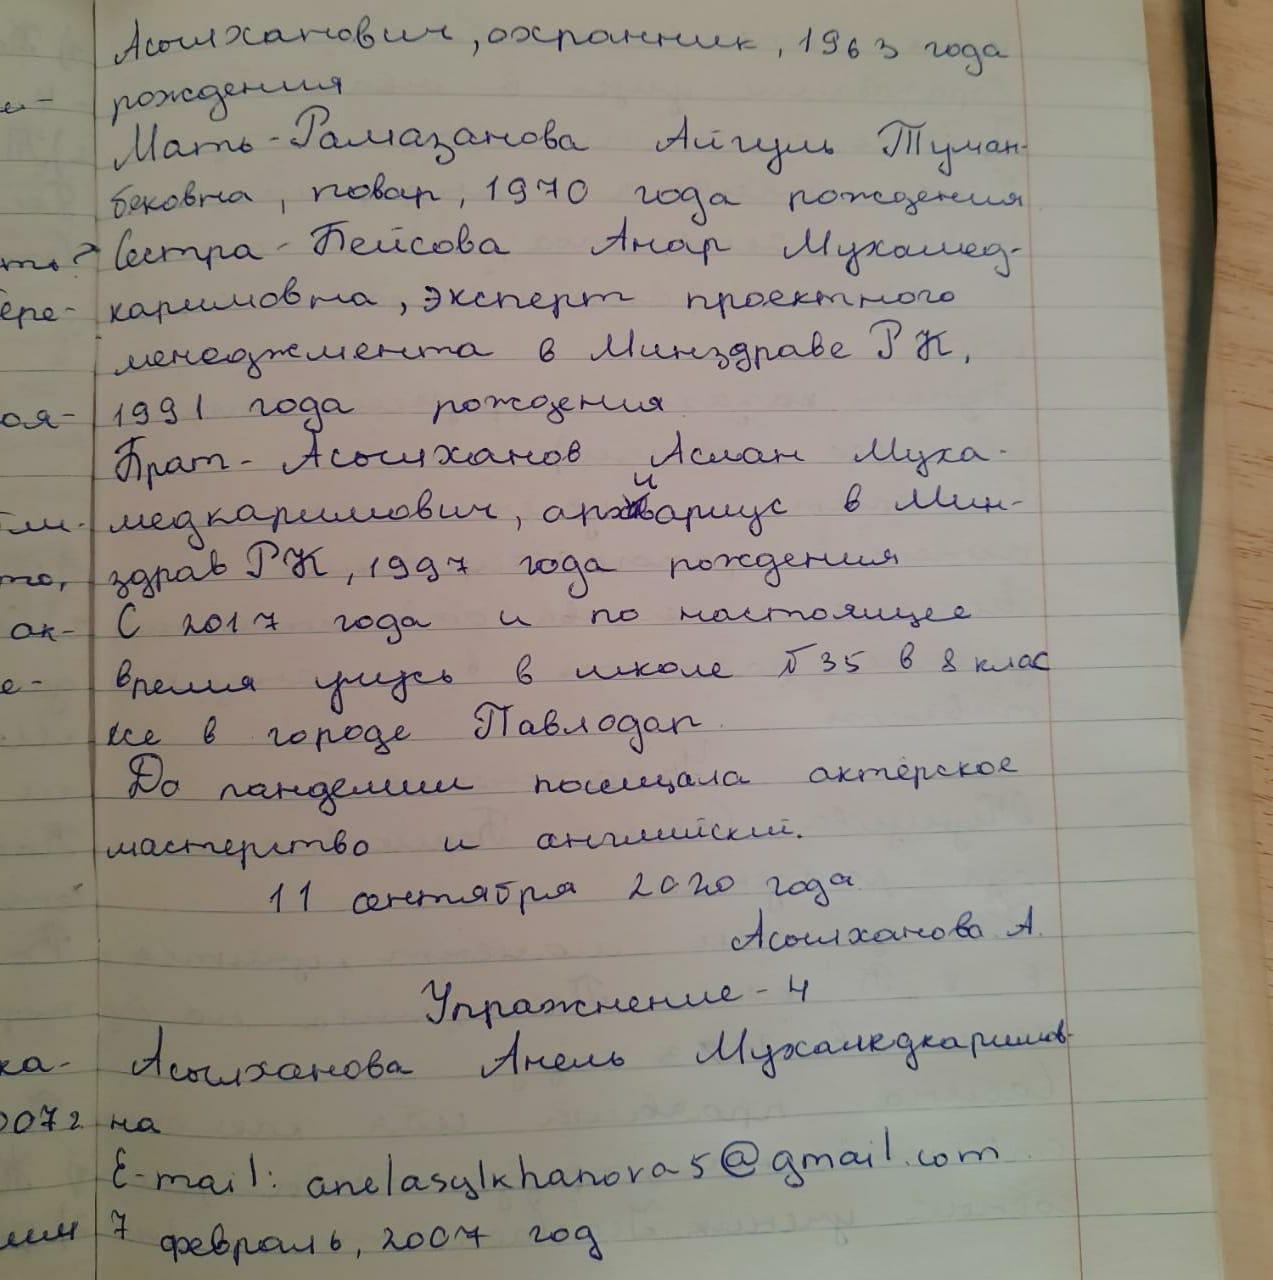 Асылханович, охранник, 1963 года
рождения
Мать-Рамазанова Айгуль Туман-
бековна, повар, 1970 года рождения
Сестра - Бейсова Анар Мухамед-
каримовна, эксперт проектного
менеджмента в Минздраве РК,
1991 года рождения
Брат - Асылханов Аслан Муха-
медкаримович, архивариус в Мин-
здрав РК, 1997 года рождения
С 2017 года и по настоящее
время учусь в школе №35 в 8 клас
се в городе Павлодар.
До пандемии посещала актёрское
мастерство и английский.
11 сентября 2020 года
Асылханова А.
Упражнение - 4
Асылханова Анель Мухамедкаримов-
на
E-mail: anelasylkhanova5@gmail.com
7 февраль, 2007 год